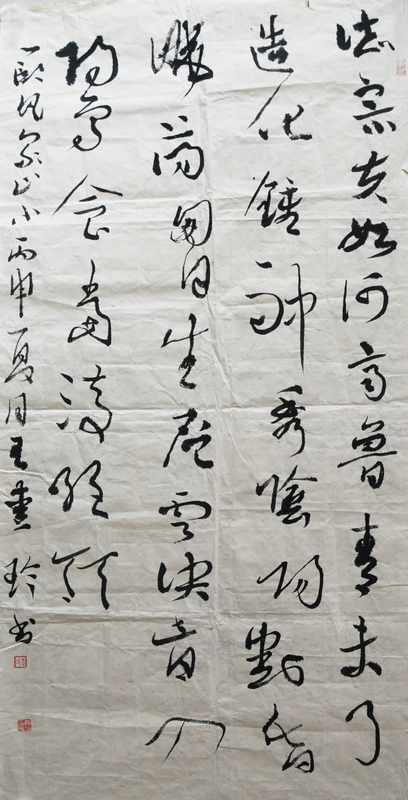 岱宗夫如何齊魯青未了
造化鍾神秀陰陽割昏
曉蕩胸生層雲決眥入
歸鳥會當凌絕頂
一覽眾山小丙申夏月王玲书